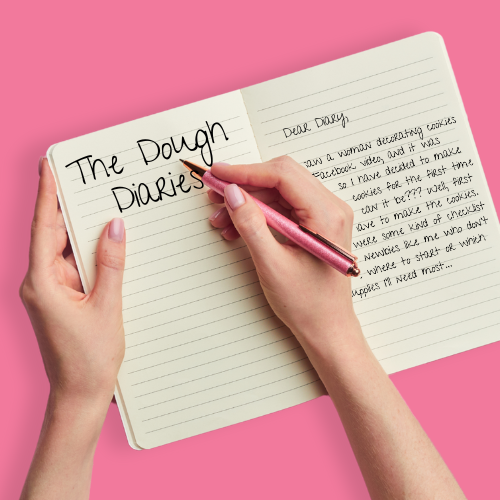 The Dough
Diaries
Dear Diary,
saw a woman decorating cookies
Facebook video, and it was
so I have decided to make
cookies for the first time
can it be??? Well, first
to make the cookies.
were some kind of checklist
newbies like me who don't
where to start or when
I'll need most...